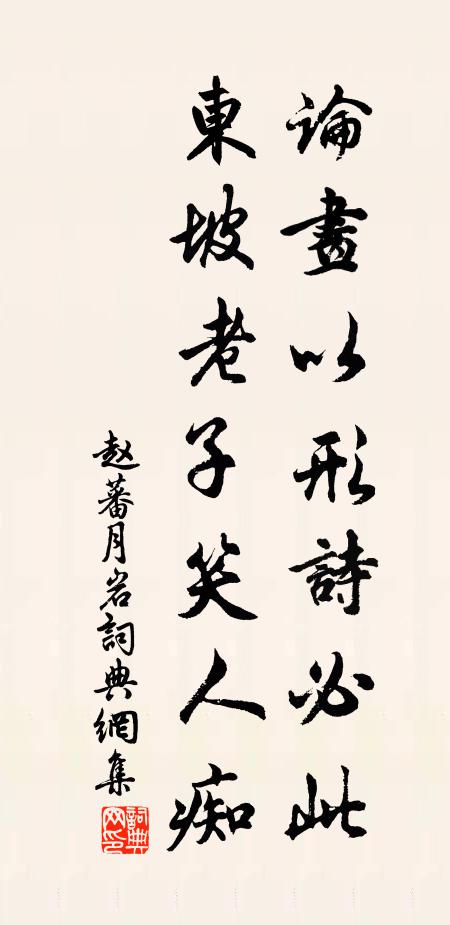 論畫以形詩必此
東坡老子笑人痴
赵蕃月岩詞典網集
詞典網印